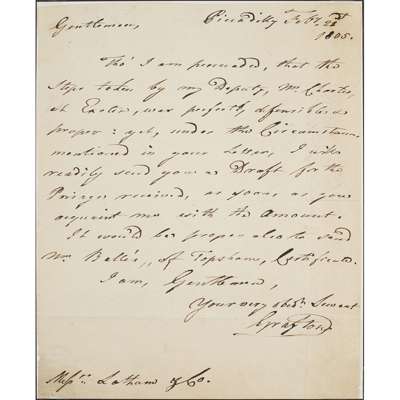 Gentlemen,
Piccadilly Feb. 22d
1805.
Tho' I am persuaded, that the
Steps taken by my Deputy, Mr
at Exeter, were perfectly defensible &
proper: yet, under the Circumstances
mentioned in your Letter, I will
readily send you a Draft for the
Prisage received, as soon, as you
acquaint me with the Amount.
It would be proper also to send
Mr of Topsham, Certificate.
I am, Gentlemen,
Your very obedt. Servant
Grafton
Messrs. Latham & Co.